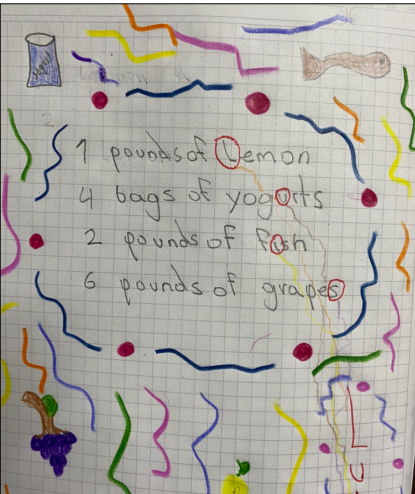 1 pounds of Lemon
4 bags of yogurts
2 pounds of fish
6 pounds of grapes
L